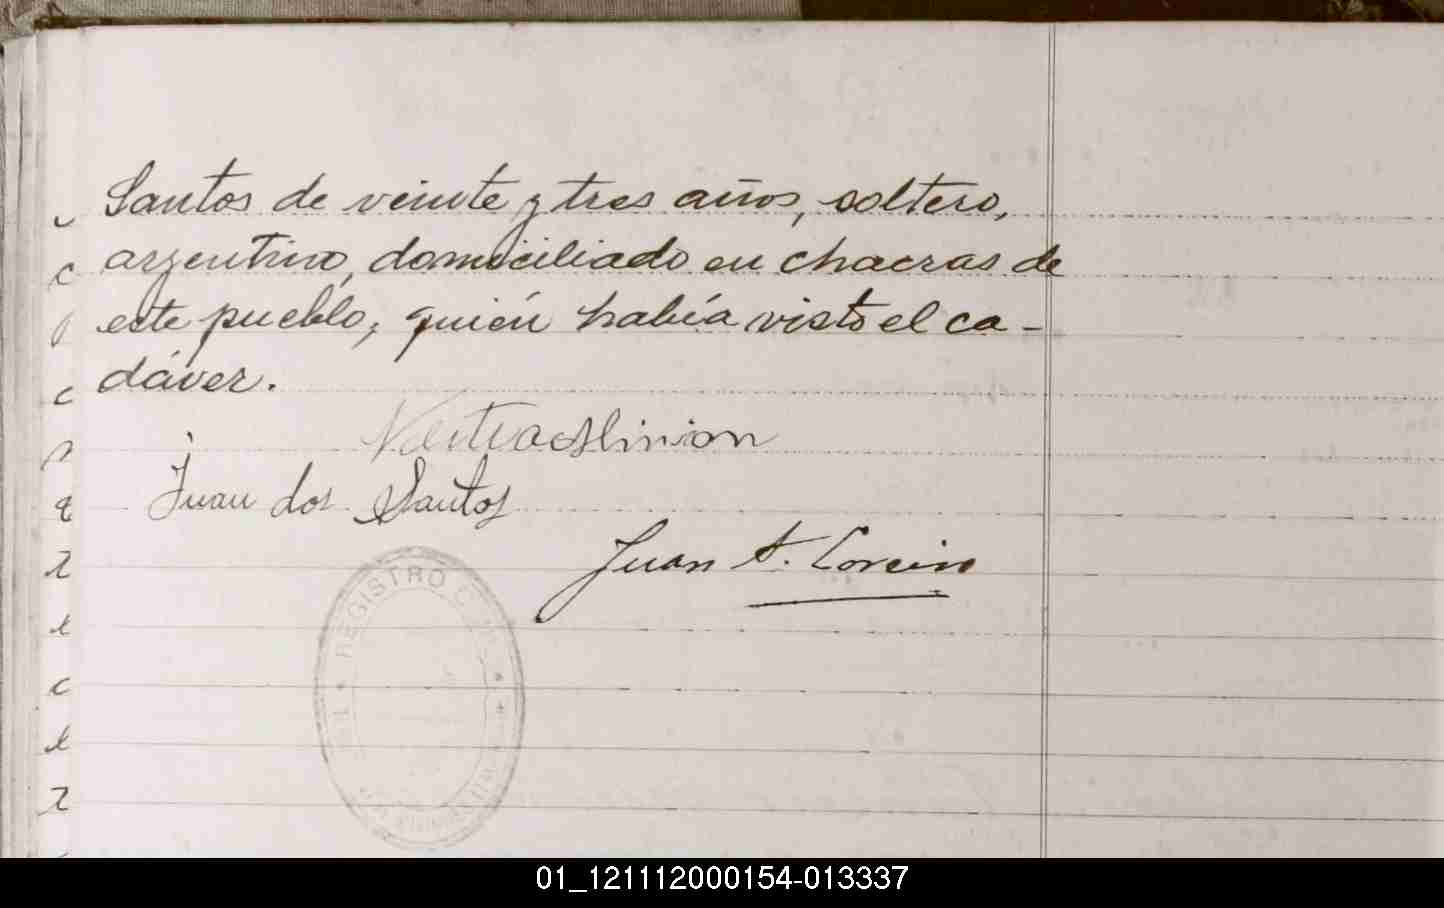 Santos de veinte y tres años, soltero,
argentino, domiciliado en chacras de
este pueblo, quién había visto el ca-
dáver.
Juan dos Santos
Juan A.
REGISTRO CIVIL
01_121112000154-013337